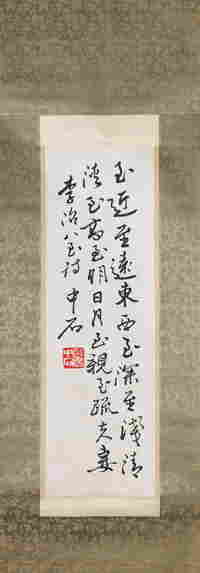 至近至遠東西至深至淺清
溪至高至明日月至親至疏夫妻
李冶八至詩 中石